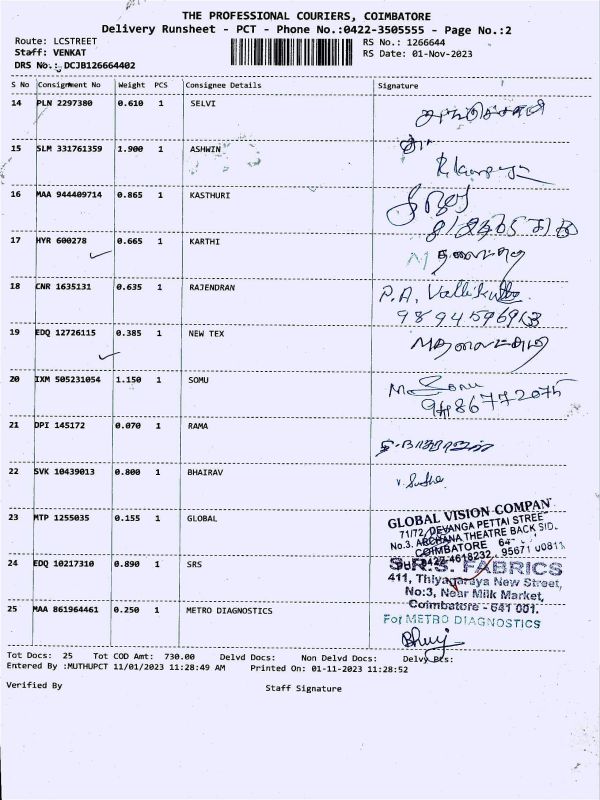 THE PROFESSIONAL COURIERS, COIMBATORE
Delivery Runsheet - PCT - Phone No.:0422-3505555 - Page No.:2
Route: LCSTREET RS No.: 1266644
Staff: VENKAT RS Date: 01-Nov-2023
DRS No.: DCJB126664402
S No Consignment No Weight PCS Consignee Details Signature
14 PLN 2297380 0.610 1 SELVI
15 SLM 331761359 1.900 1 ASHWIN
16 MAA 944409714 0.865 1 KASTHURI
17 HYR 600278 0.665 1 KARTHI
18 CNR 1635131 0.635 1 RAJENDRAN P.A.
19 EDQ 12726115 0.385 1 NEW TEX
20 IXM 505231054 1.150 1 SOMU
21 DPI 145172 0.070 1 RAMA
22 SVK 10439013 0.800 1 BHAIRAV
23 MTP 1255035 0.155 1 GLOBAL GLOBAL VISION COMPAN
71/72, DEVANGA PETTAI STREE
No.3, ARCHANA THEATRE BACK SID.
COIMBATORE
0422-4618232
24 EDQ 10217310 0.890 1 SRS S.R.S. FABRICS
411, Thiyagaraya New Street,
No:3, Near Milk Market,
Coimbatore - 641 001.
25 MAA 861964461 0.250 1 METRO DIAGNOSTICS For METRO DIAGNOSTICS
Tot Docs: 25 Tot COD Amt: 730.00 Delvd Docs: Non Delvd Docs: Delvy Pcs:
Entered By :MUTHUPCT 11/01/2023 11:28:49 AM Printed On: 01-11-2023 11:28:52
Verified By Staff Signature